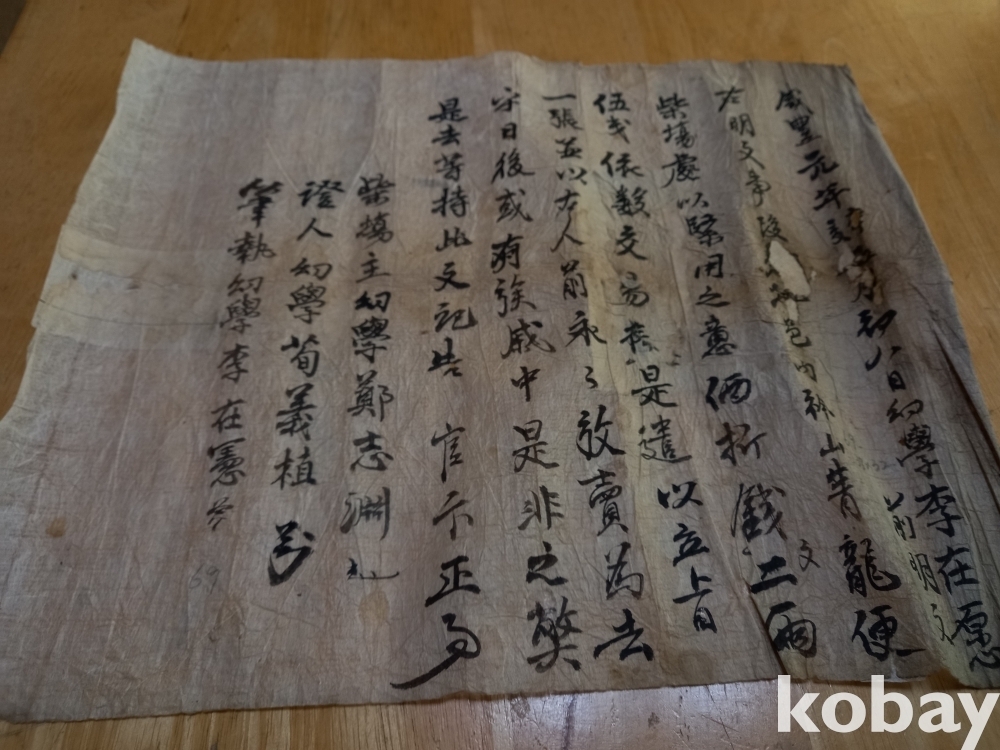 咸豊元年亥五月初八日幼學李在愿
前明文
右明文事段邑內神山靑龍便
柴場處以緊用之意価折錢文二兩
伍戈依数交易是遣以立上日
一張並以右人前永々放賣爲去
乎日後或有族戚中是非之弊
是去等持此文記告官卞正事
柴場主幼學鄭志淵
證人幼學荀義植
筆執幼學李在憲
kobay